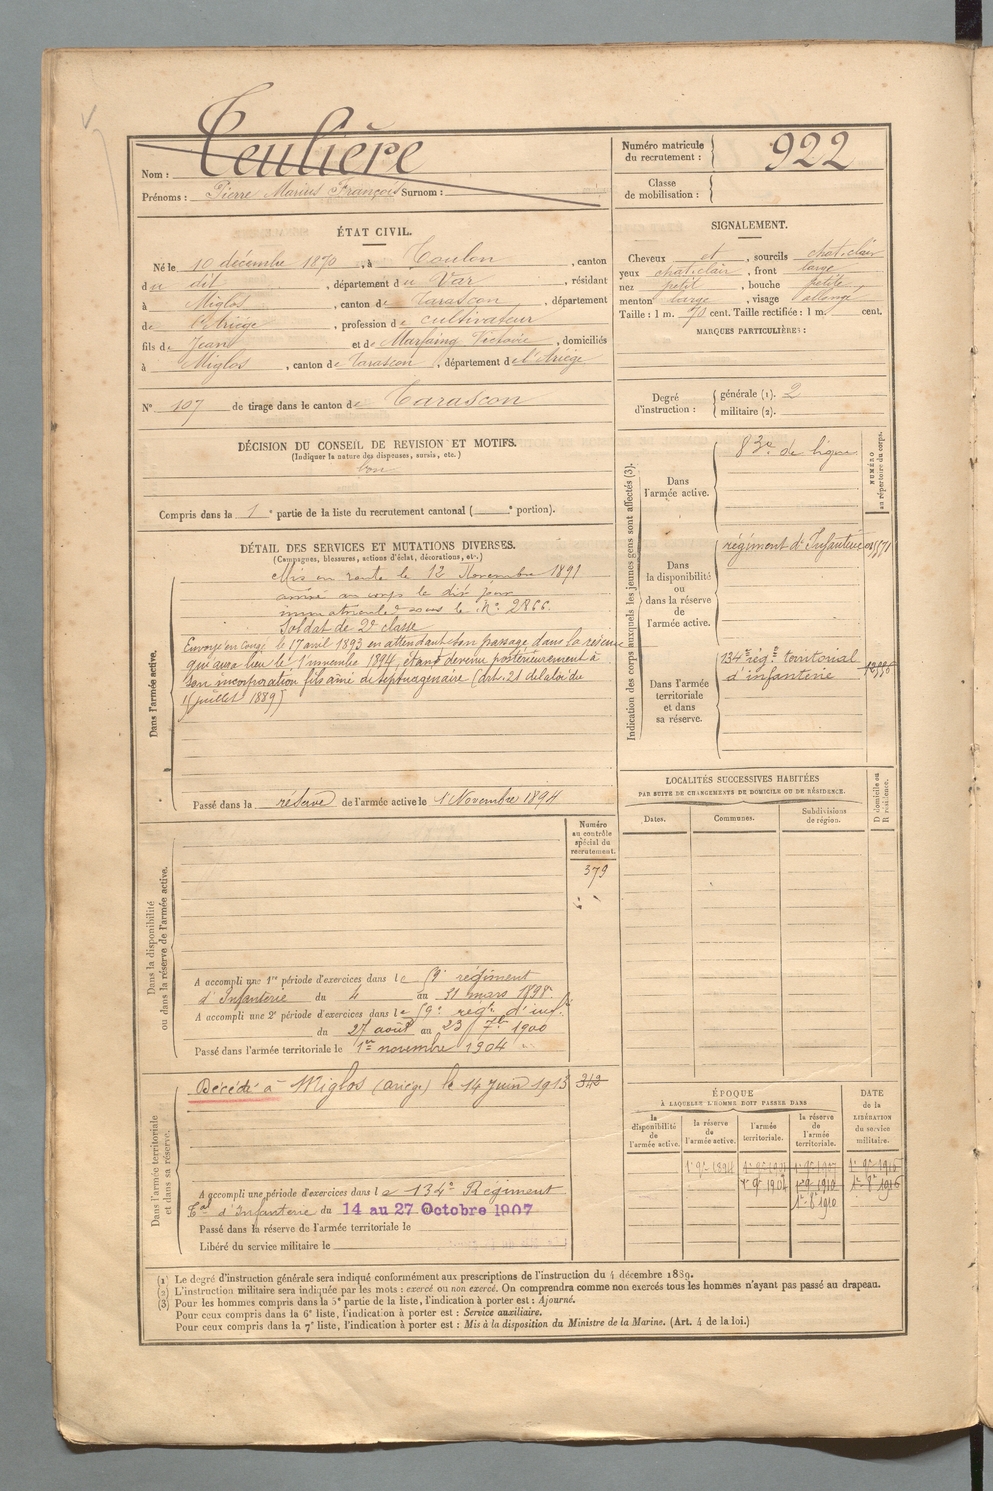 Nom : Teulière
Prénoms : Pierre Marius François Surnom :
Numéro matricule du recrutement : 922
Classe de mobilisation :
ÉTAT CIVIL.
Né le 10 décembre 1870, à Toulon, canton
du dit, département du Var, résidant
à Miglos, canton de Tarascon, département
de l'Ariège, profession de cultivateur
fils de Jean et de Marfaing Victoire, domiciliés
à Miglos, canton de Tarascon, département de l'Ariège
N° 107 de tirage dans le canton de Tarascon
SIGNALEMENT.
Cheveux et, sourcils chat. clair
yeux chat. clair, front large
nez petit, bouche petite
menton large, visage allongé
Taille : 1 m. 70 cent. Taille rectifiée : 1 m. cent.
MARQUES PARTICULIÈRES :
Degré d'instruction : générale (1). 2
militaire (2).
DÉCISION DU CONSEIL DE REVISION ET MOTIFS.
(Indiquer la nature des dispenses, sursis, etc.)
bon
Compris dans la 1e partie de la liste du recrutement cantonal ( e portion).
DÉTAIL DES SERVICES ET MUTATIONS DIVERSES.
(Campagnes, blessures, actions d'éclat, décorations, etc.)
Dans l'armée active.
Mis en route le 12 Novembre 1891
arrivé au corps le dit jour
immatriculé sous le N° 2866.
Soldat de 2e classe
Envoyé en Congé le 17 avril 1893 en attendant son passage dans la réserve
qui aura lieu le 1 novembre 1894, étant devenu postérieurement à
son incorporation fils aîné de septuagénaire (art. 21 de la loi du
15 juillet 1889)
Passé dans la réserve de l'armée active le 1 Novembre 1894
Dans la disponibilité ou dans la réserve de l'armée active.
Numéro au contrôle spécial du recrutement.
379
A accompli une 1re période d'exercices dans le régiment
d'Infanterie du 4 au 31 mars 1898
A accompli une 2e période d'exercices dans le 59e régt d'inf.
du 27 août au 23 7bre 1900
Passé dans l'armée territoriale le 1er novembre 1904
Dans l'armée territoriale et dans sa réserve.
Décédé à Miglos (Ariège) le 14 Juin 1913
342
A accompli une période d'exercices dans le 134e Régiment
Tal d'Infanterie du 14 au 27 Octobre 1907
Passé dans la réserve de l'armée territoriale le
Libéré du service militaire le
Indication des corps auxquels les jeunes gens sont affectés (3).
NUMÉRO au répertoire du corps.
Dans l'armée active.
83e de ligne
Dans la disponibilité ou dans la réserve de l'armée active.
régiment d'Infanterie
Dans l'armée territoriale et dans sa réserve.
134e régt territorial
d'infanterie
LOCALITÉS SUCCESSIVES HABITÉES
PAR SUITE DE CHANGEMENTS DE DOMICILE OU DE RÉSIDENCE.
D domicile ou R résidence.
Dates. Communes. Subdivisions de région.
ÉPOQUE
À LAQUELLE L'HOMME DOIT PASSER DANS
DATE de la LIBÉRATION du service militaire.
la disponibilité de l'armée active.
la réserve de l'armée active.
l'armée territoriale.
la réserve de l'armée territoriale.
(1) Le degré d'instruction générale sera indiqué conformément aux prescriptions de l'instruction du 4 décembre 1889.
(2) L'instruction militaire sera indiquée par les mots : exercé ou non exercé. On comprendra comme non exercés tous les hommes n'ayant pas passé au drapeau.
(3) Pour les hommes compris dans la 5e partie de la liste, l'indication à porter est : Ajourné.
Pour ceux compris dans la 6e liste, l'indication à porter est : Service auxiliaire.
Pour ceux compris dans la 7e liste, l'indication à porter est : Mis à la disposition du Ministre de la Marine. (Art. 4 de la loi.)